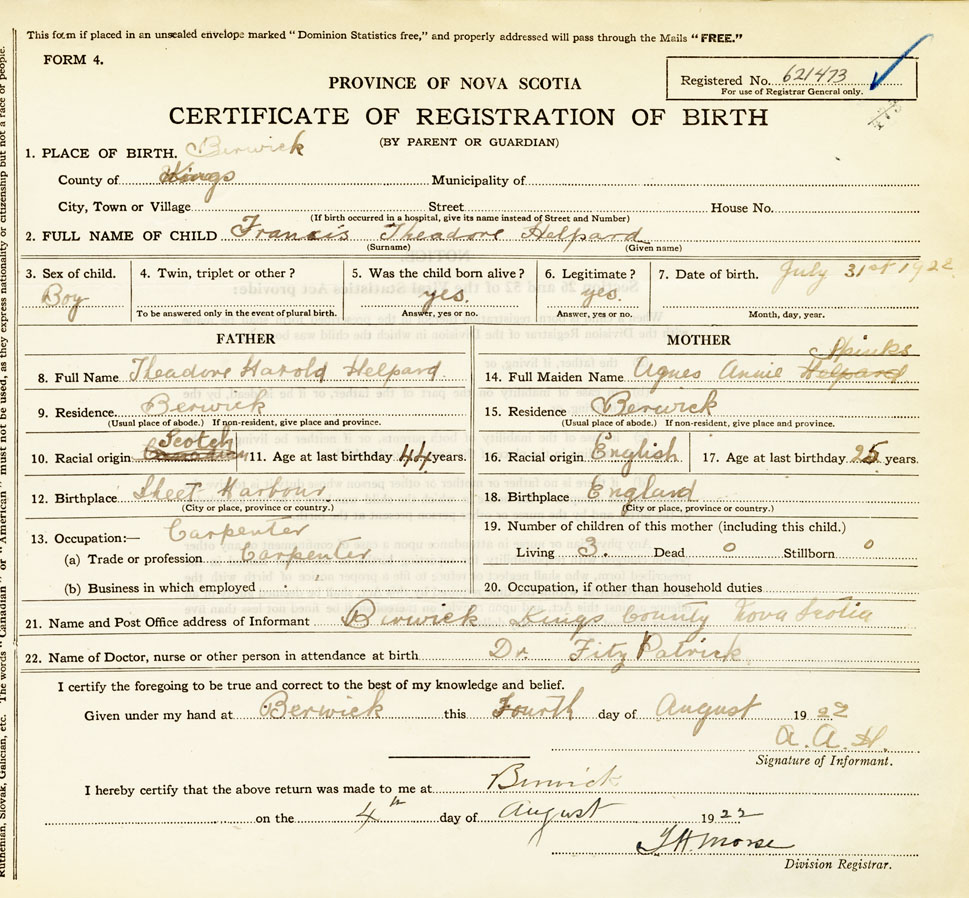 This form if placed in an unsealed envelope marked "Dominion Statistics free," and properly addressed will pass through the Mails "FREE."
FORM 4.
Registered No. 621473
For use of Registrar General only.
PROVINCE OF NOVA SCOTIA
CERTIFICATE OF REGISTRATION OF BIRTH
(BY PARENT OR GUARDIAN)
1. PLACE OF BIRTH. Berwick
County of Kings Municipality of
City, Town or Village Street House No.
(If birth occurred in a hospital, give its name instead of Street and Number)
2. FULL NAME OF CHILD Francis Theadore Helpard
(Surname) (Given name)
3. Sex of child. 4. Twin, triplet or other? 5. Was the child born alive? 6. Legitimate? 7. Date of birth. July 31st 1922
Boy yes. yes.
To be answered only in the event of plural birth. Answer, yes or no. Answer, yes or no. Month, day, year.
FATHER
8. Full Name Theadore Harold Helpard
9. Residence. Berwick
(Usual place of abode.) If non-resident, give place and province.
Scotch
10. Racial origin Canadian 11. Age at last birthday 44 years.
12. Birthplace Sheet Harbour
(City or place, province or country.)
13. Occupation:— Carpenter
(a) Trade or profession Carpenter
(b) Business in which employed
MOTHER
Spinks
14. Full Maiden Name Agnes Annie Helpard
15. Residence Berwick
(Usual place of abode.) If non-resident, give place and province.
16. Racial origin English 17. Age at last birthday 25 years.
18. Birthplace England
(City or place, province or country.)
19. Number of children of this mother (including this child.)
Living 3. Dead 0 Stillborn 0
20. Occupation, if other than household duties
21. Name and Post Office address of Informant Berwick Kings County Nova Scotia
22. Name of Doctor, nurse or other person in attendance at birth Dr. Fitz Patrick
I certify the foregoing to be true and correct to the best of my knowledge and belief.
Given under my hand at Berwick this Fourth day of August 1922
A. A. H.
Signature of Informant.
I hereby certify that the above return was made to me at Berwick
on the 4th day of August 1922
Morse
Division Registrar.
Ruthenian, Slovak, Galician, etc. The words "Canadian" or "American" must not be used, as they express nationality or citizenship but not a race or people.